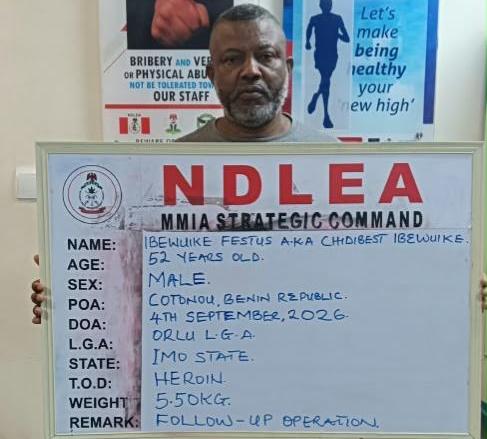 BRIBERY AND
OR PHYSICAL
NOT BE TOLERATED
OUR STAFF
BEWARE
Let's
make
being
healthy
your
'new high'
NDLEA
MMIA STRATEGIC COMMAND
NAME: IBEWUIKE FESTUS A.K.A CHIDIBEST IBEWUIKE.
AGE: 52 YEARS OLD.
SEX: MALE.
POA: COTONOU, BENIN REPUBLIC.
DOA: 4TH SEPTEMBER, 2026.
L.G.A: ORLU L.G.A.
STATE: IMO STATE.
T.O.D: HEROIN.
WEIGHT: 5.50KG.
REMARK: FOLLOW-UP OPERATION.